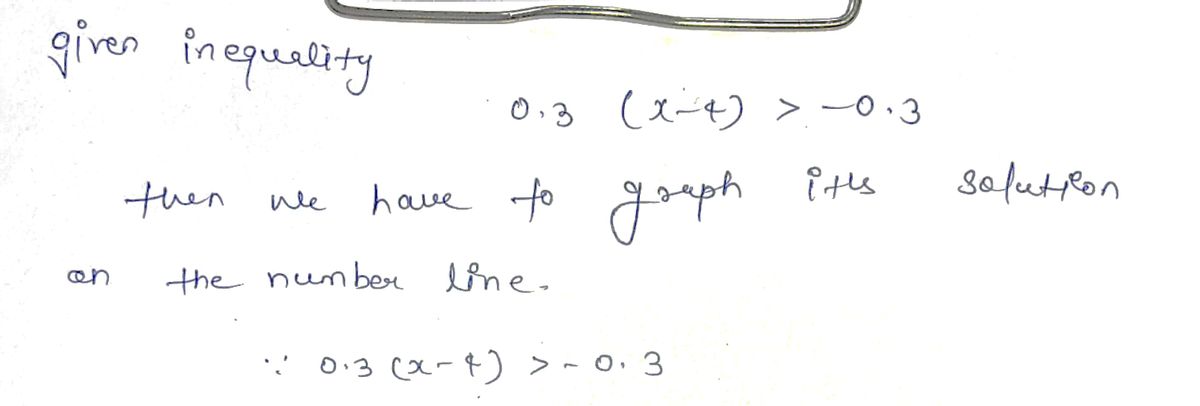 given inequality
0.3 (x-4) > -0.3
then we have to graph its solution
on the number line.
∵ 0.3 (x-4) > -0.3